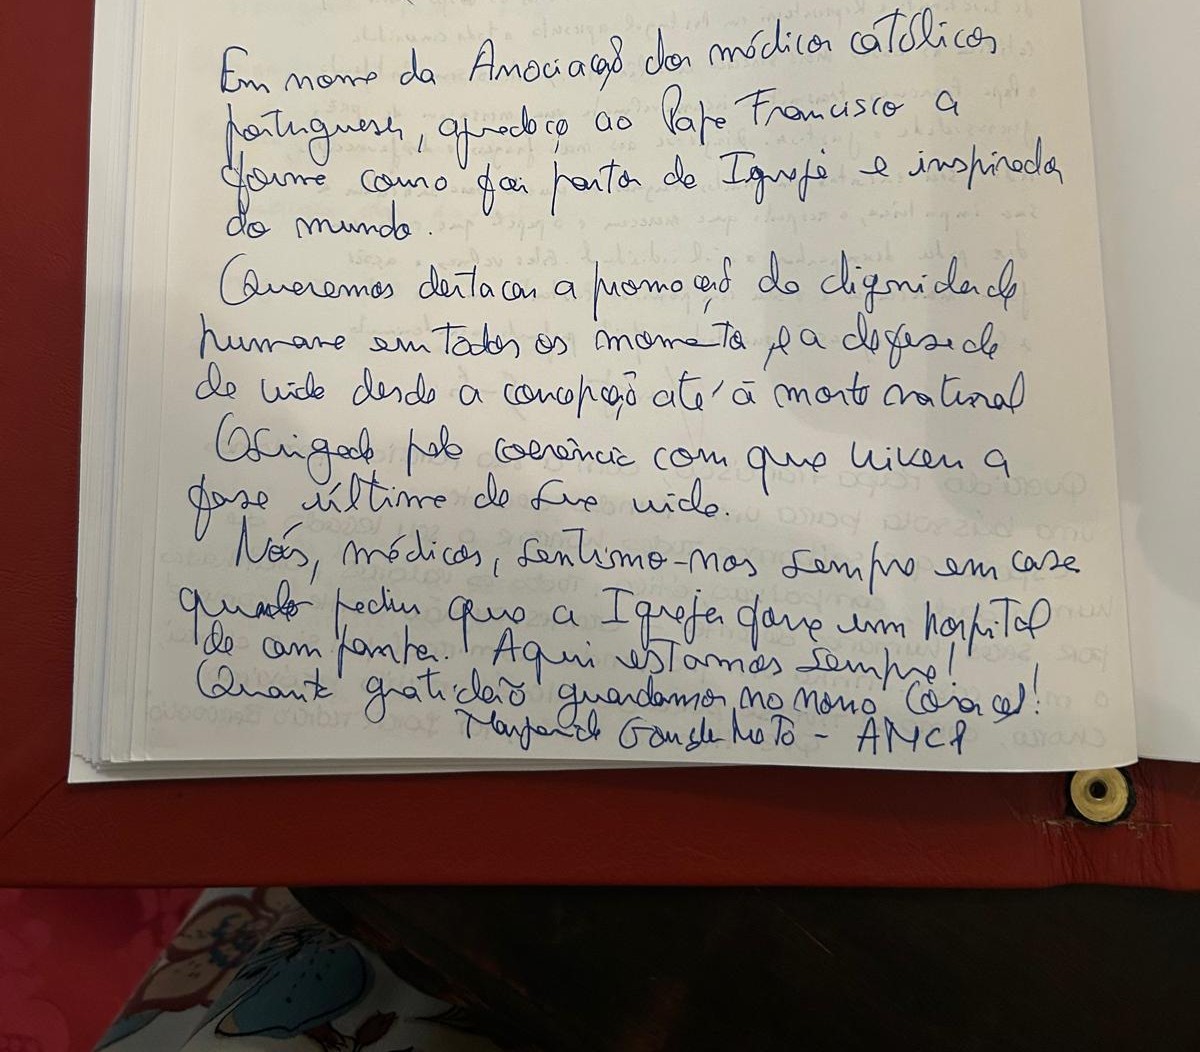 Em nome da Associação dos médicos católicos
portugueses, agradeço ao Papa Francisco a
forma como foi pastor da Igreja e inspirador
do mundo.
Queremos destacar a promoção da dignidade
humana em todos os momentos, e a defesa da
da vida desde a concepção até à morte natural
Obrigado pela coerência com que viveu a
fase última da sua vida.
Nós, médicos, sentimo-nos sempre em casa
quando pediu que a Igreja fosse um hospital
de campanha. Aqui estamos sempre!
Quanta gratidão guardamos no nosso Coração!
Margarida Neto - AMCP